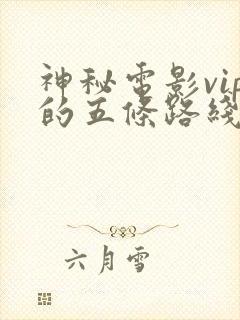 神秘電影vip
的五條路綫
六月雪